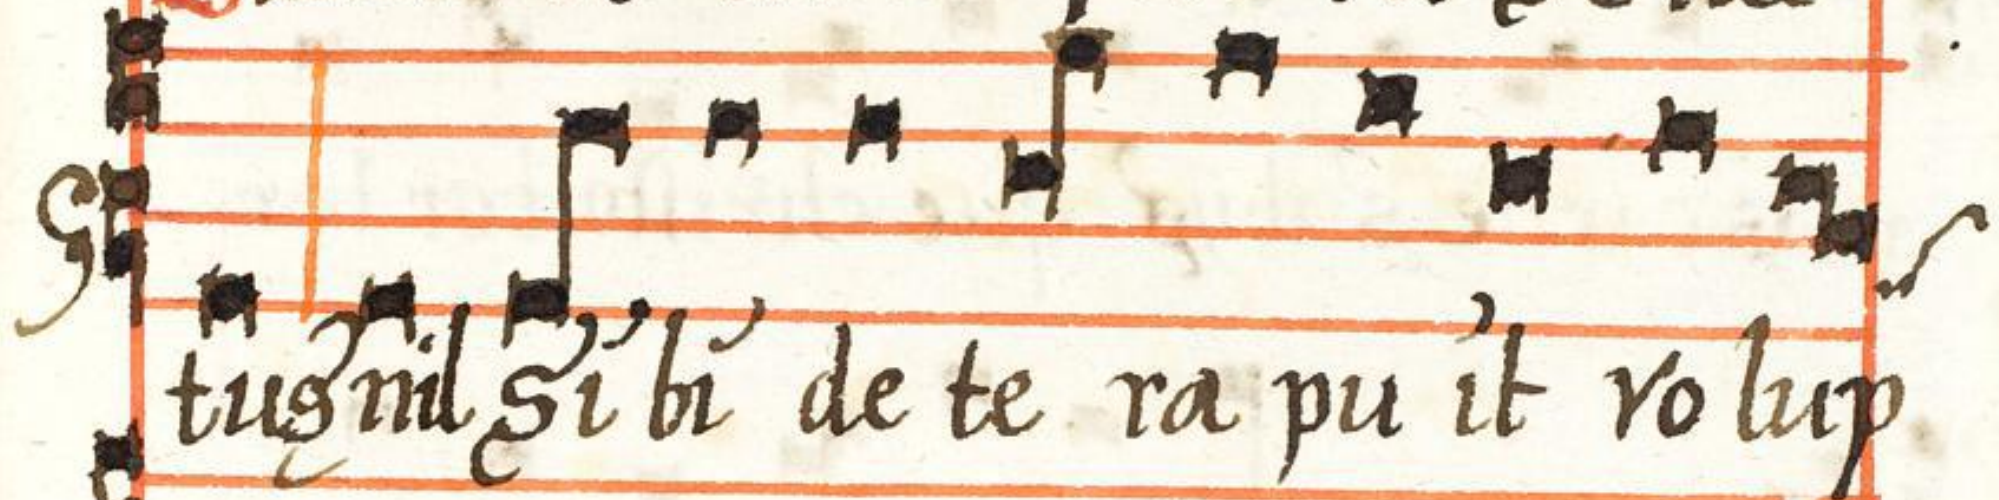 tus nil si bi de te ra pu it vo lup